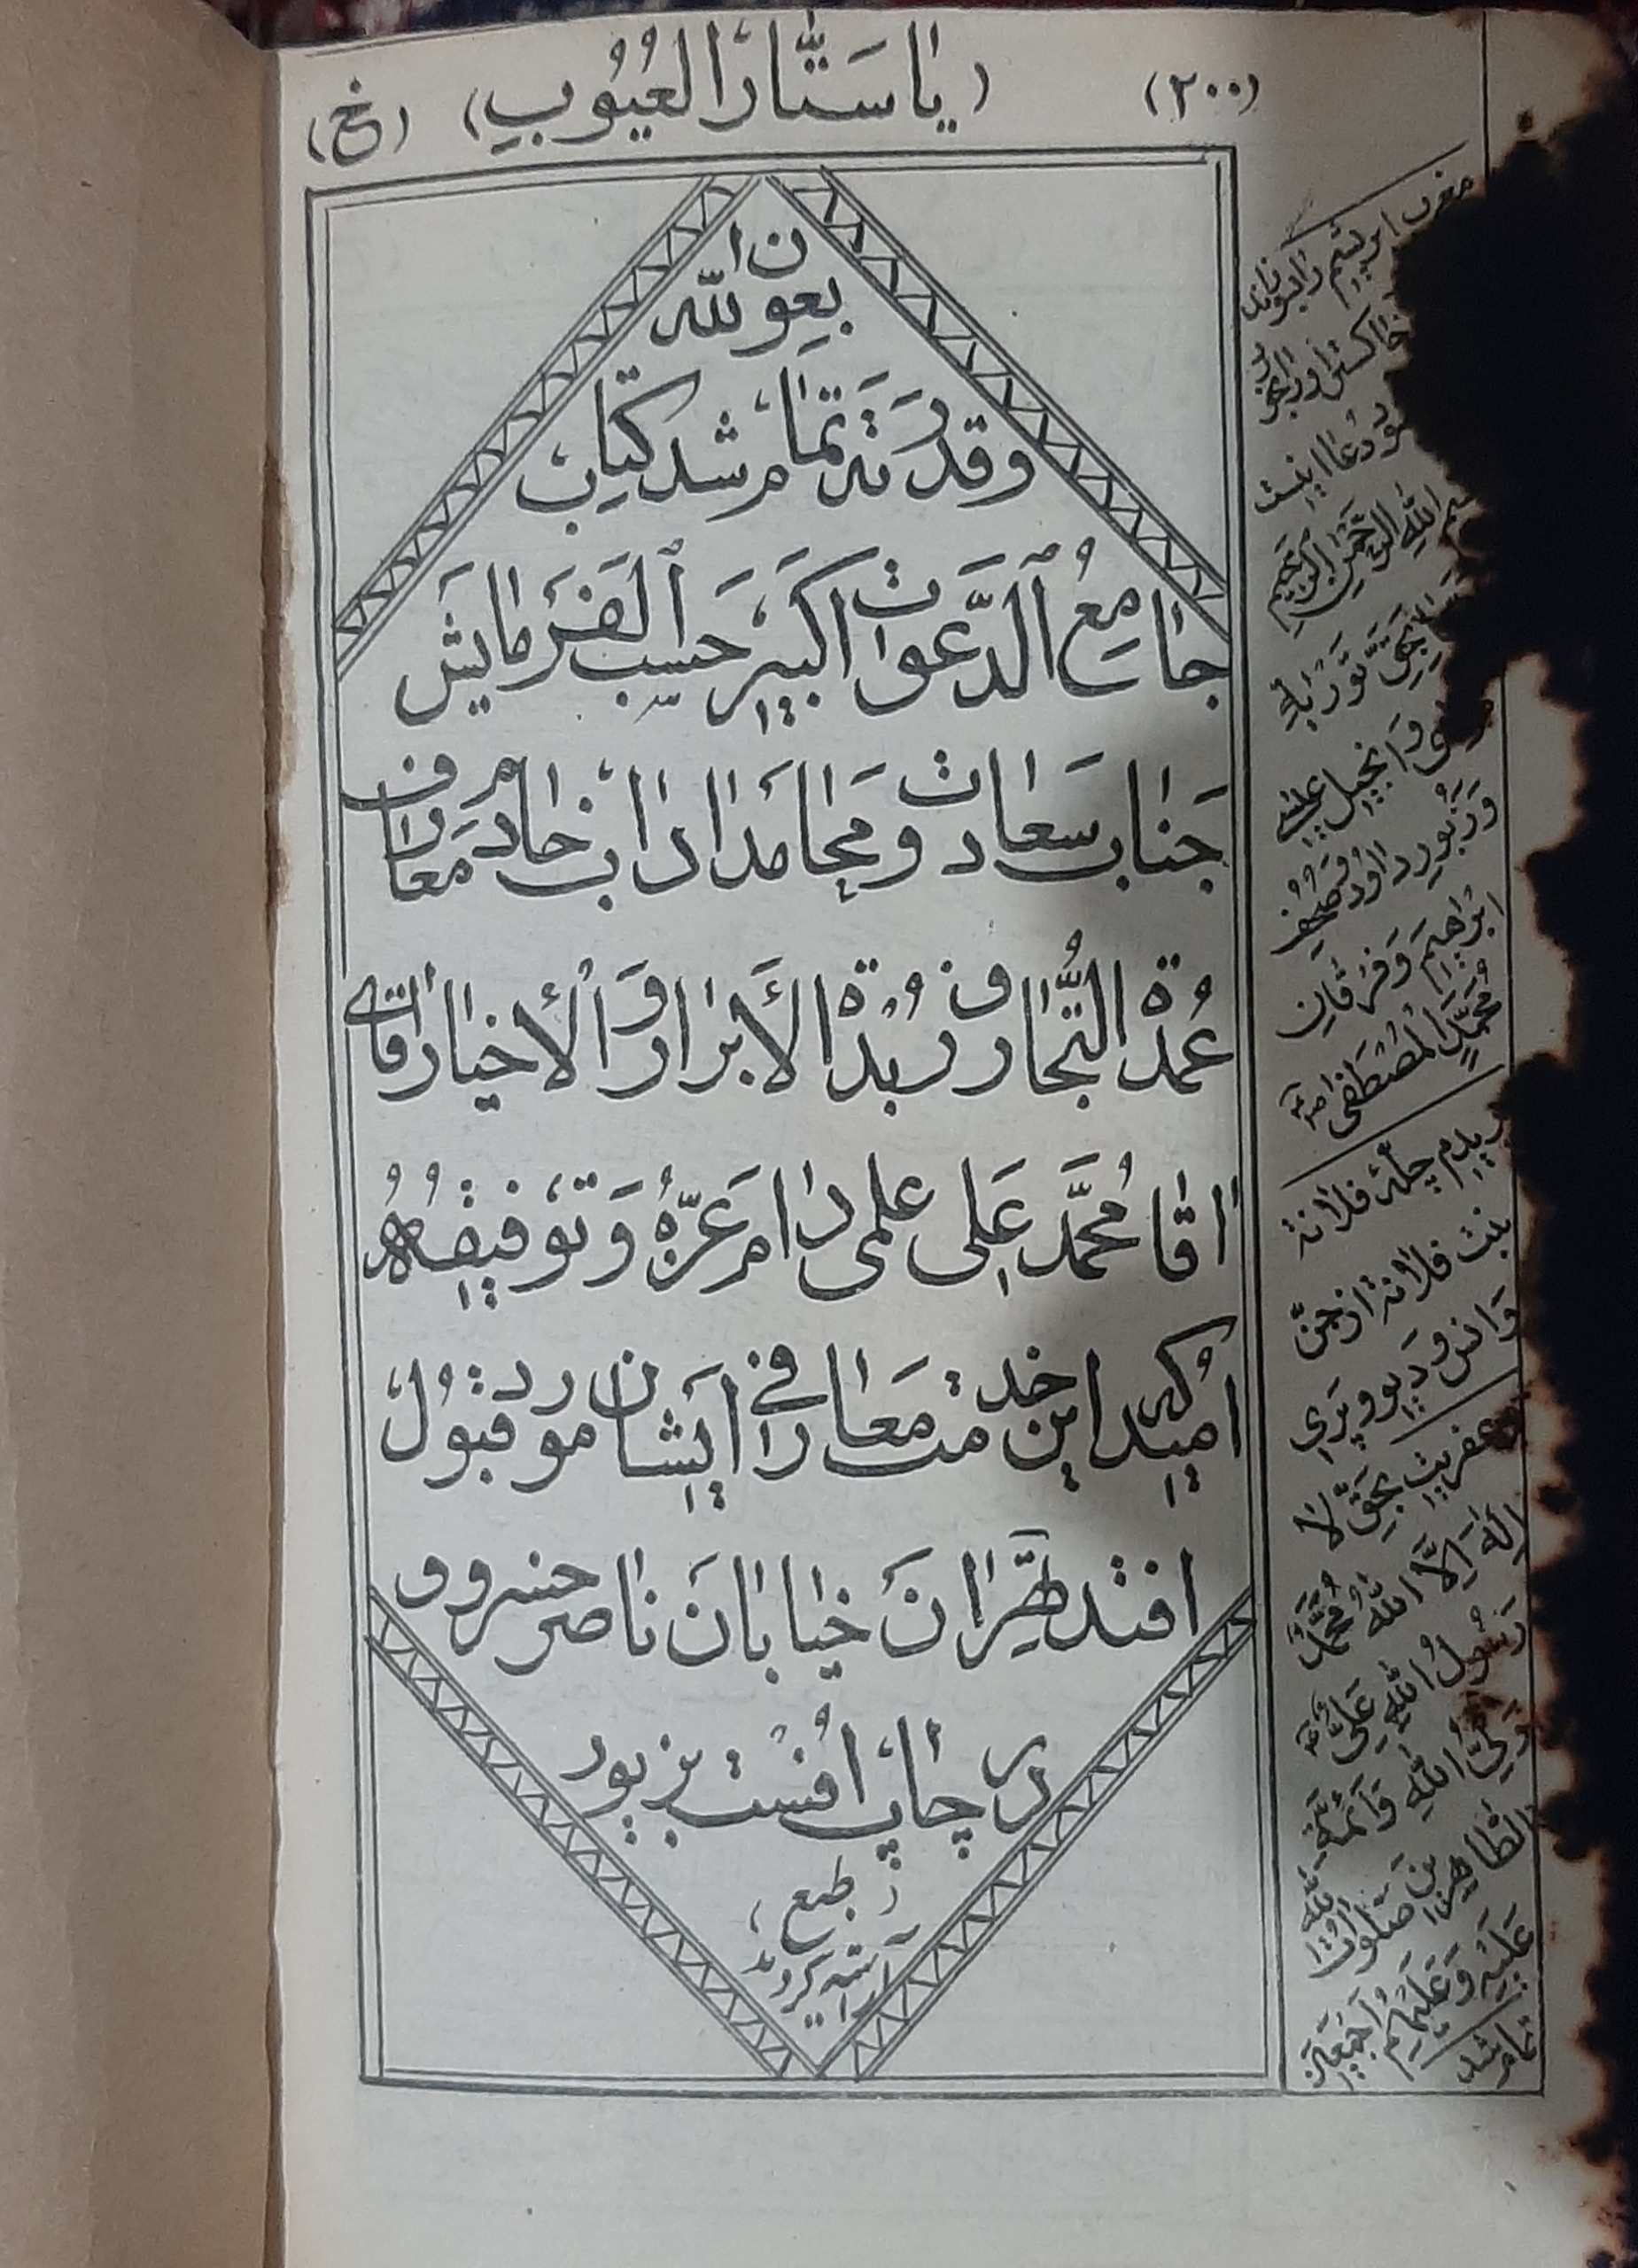 (۲۰۰) (یٰا سَتّٰارَ الْعُیُوبِ) (خ)
بعون الله
وقدرته تمام شد کتاب
جامع الدعوات کبیر حسب الفرمایش
جناب سعادت و محامد اداب خادم معارف
عمدة التجار و زبدة الأبرار و الأخیار اقای
اقا محمد علی علمی دام عزّه و توفیقه
امید که این خدمت معارفی ایشان مورد قبول
افتد طهران خیابان ناصر خسرو
در چاپ افست بزپور
طبع
مغرب ابریشم را بسوزاند
دعا اینست
الله الرحمن الرحیم
بحق تورية
و انجیل عیسی
و زبور داود و صحف
ابرهیم و فرقان
محمد المصطفی ص
بریدم چله فلانه
بنت فلانه از جن
و انس و دیو و پری
و عفریت بحق لا
اله الا الله محمد
رسول الله علی
ولی الله و ائمة
الطاهرین صلوات الله
علیه و علیهم اجمعین
تمام شد